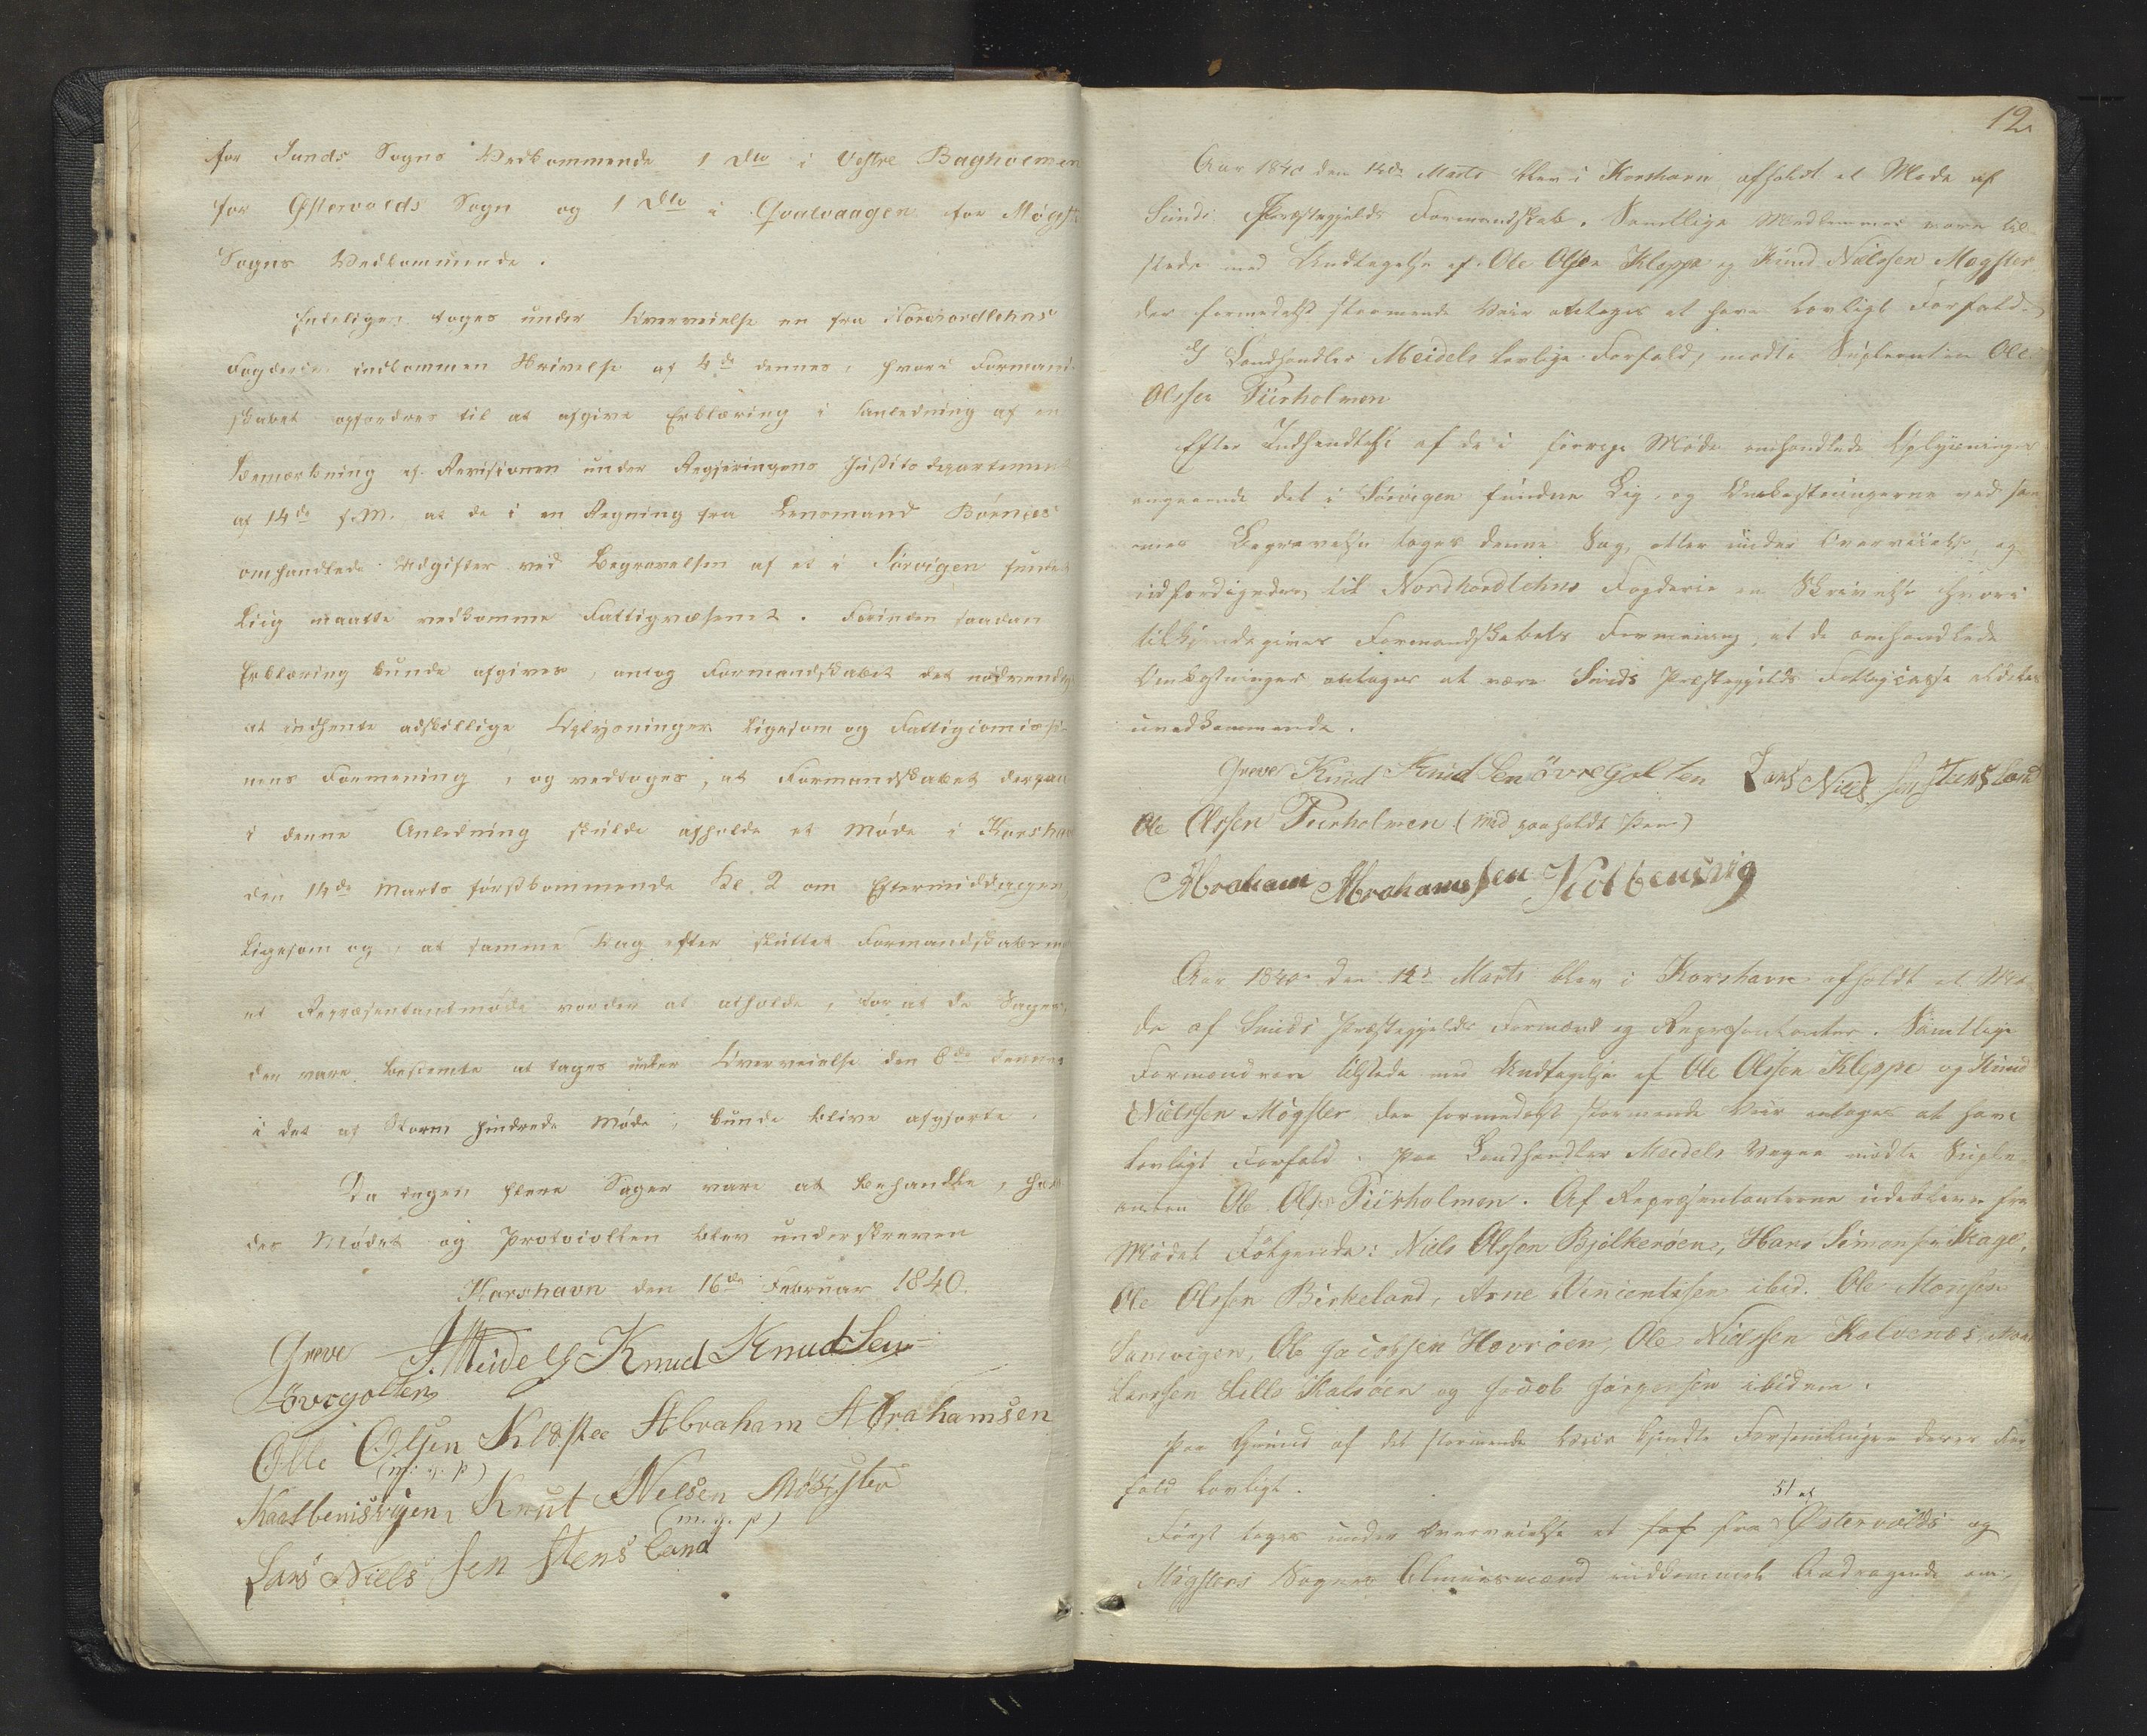 for Sunds Sogns Vedkommende 1 Dto i Vestre Bagholmen
for Østervolds Sogn og 1 Dto i Hvalvaagen for Møgst
Sogns Vedkommende.
Endeligen toges under Overveielse en fra Nordhordlehns
Fogderie indkommen Skrivelse af 4de dennes, hvori Formand-
skabet opfordres til at afgive Erklæring i Anledning af en
Bemærkning af Revisionen under Regjeringens Justitsdepartement
af 14de f. M. at de i en Regning fra Lensmand Børnes
omhandlede Udgifter ved Begravelsen af et i Sørvigen fundet
Liig maatte vedkomme Fattigvæsenet. Forinden saadan
Erklæring kunde afgives, antog Formandskabet det nødvendigt
at indhente adskillige Oplysninger ligesom og Fattigcomissio-
nens Formening, og vedtoges, at Formandskabet derpaa
i denne Anledning skulde afholde et Møde i Korshavn
den 14de Marts førstkommende Kl. 2 om Eftermiddagen,
ligesom og, at samme Dag efter sluttet Formandskabsmøde
et Repræsentantmøde vorder at afholde, for at de Sager,
der vare bestemte at tages under Overveielse den 8de dennes
i det af Storm hindrede Møde, kunde blive afgjorte.
Da ingen flere Sager vare at behandle, hæve-
des Mødet og Protocollen blev underskreven
Korshavn den 16de Februar 1840.
Greve J. Meidell Knud Knudsen
Øvregolten
Olle Olsen Kleppe Abraham Abrahamsen
(m. g. p)
Kaalbeinsvigen, Knut Nielsen Møgster
(m. g. p)
Lars Nielssen Stensland
12.
Aar 1840 den 14de Marts blev i Korshavn afholdt et Møde af
Sunds Præstegjelds Formandskab. Samtlige Medlemmer vare til-
stede med Undtagelse af Ole Olsen Kleppe og Knud Nielssen Møgster,
der formedelst stormende Veir antoges at have lovligt Forfald.
I Landhandler Meidels lovlige Forfald, mødte Supleanten Ole
Olssen Tuerholmen
Efter Indhentelse af de i forrige Møde omhandlede Oplysninger
angaaende det i Sørvigen fundne Liig, og Omkostningerne ved sam-
mes Begravelse toges denne Sag atter under Overveielse, og
udfærdigedes til Nordhordlehns Fogderie en Skrivelse hvori
tilkjendegives Formandskabets Formening, at de omhandlede
Omkostninger antages at være Sunds Præstegjelds Fattigcasse aldeles
uvedkommende.
Greve Knud Knudsen Øvregolten Lars Nielssen Stensland
Ole Olssen Tuerholmen (med paaholdt Pen)
Abraham Abrahamssen Kolbeinsvig
Aar 1840 den 14de Marts blev i Korshavn afholdt et Mø-
de af Sunds Præstegjelds Formænd og Repræsentanter. Samtlige
Formænd vare tilstede med Undtagelse af Ole Olssen Kleppe og Knud
Nielssen Møgster der formedelst stormende Veir antoges at have
lovligt Forfald. Paa Landhandler Meidels Vegne mødte Suple-
anten Ole Olsen Tuerholmen. Af Repræsentanterne udebleve fra
Mødet Følgende: Niels Olsson Bjelkerøen, Hans Simonsen Skage,
Ole Olssen Birkeland, Arne Vincentssen ibid. Ole Monssen
Samvigen, Ole Jacobsen Hevrøen, Ole Nielssen Kalvenes, Mons
Larssen Lille Kalsøen og Jacob Jørgensen ibidem.
Paa Grund af det stormende Veir kjendte Forsamlingen deres For-
fald lovligt.
51 af
Først toges under Overveielse et fra Østervolds og
Møgsters Sognes Almuesmænd indkommet Andragende om,